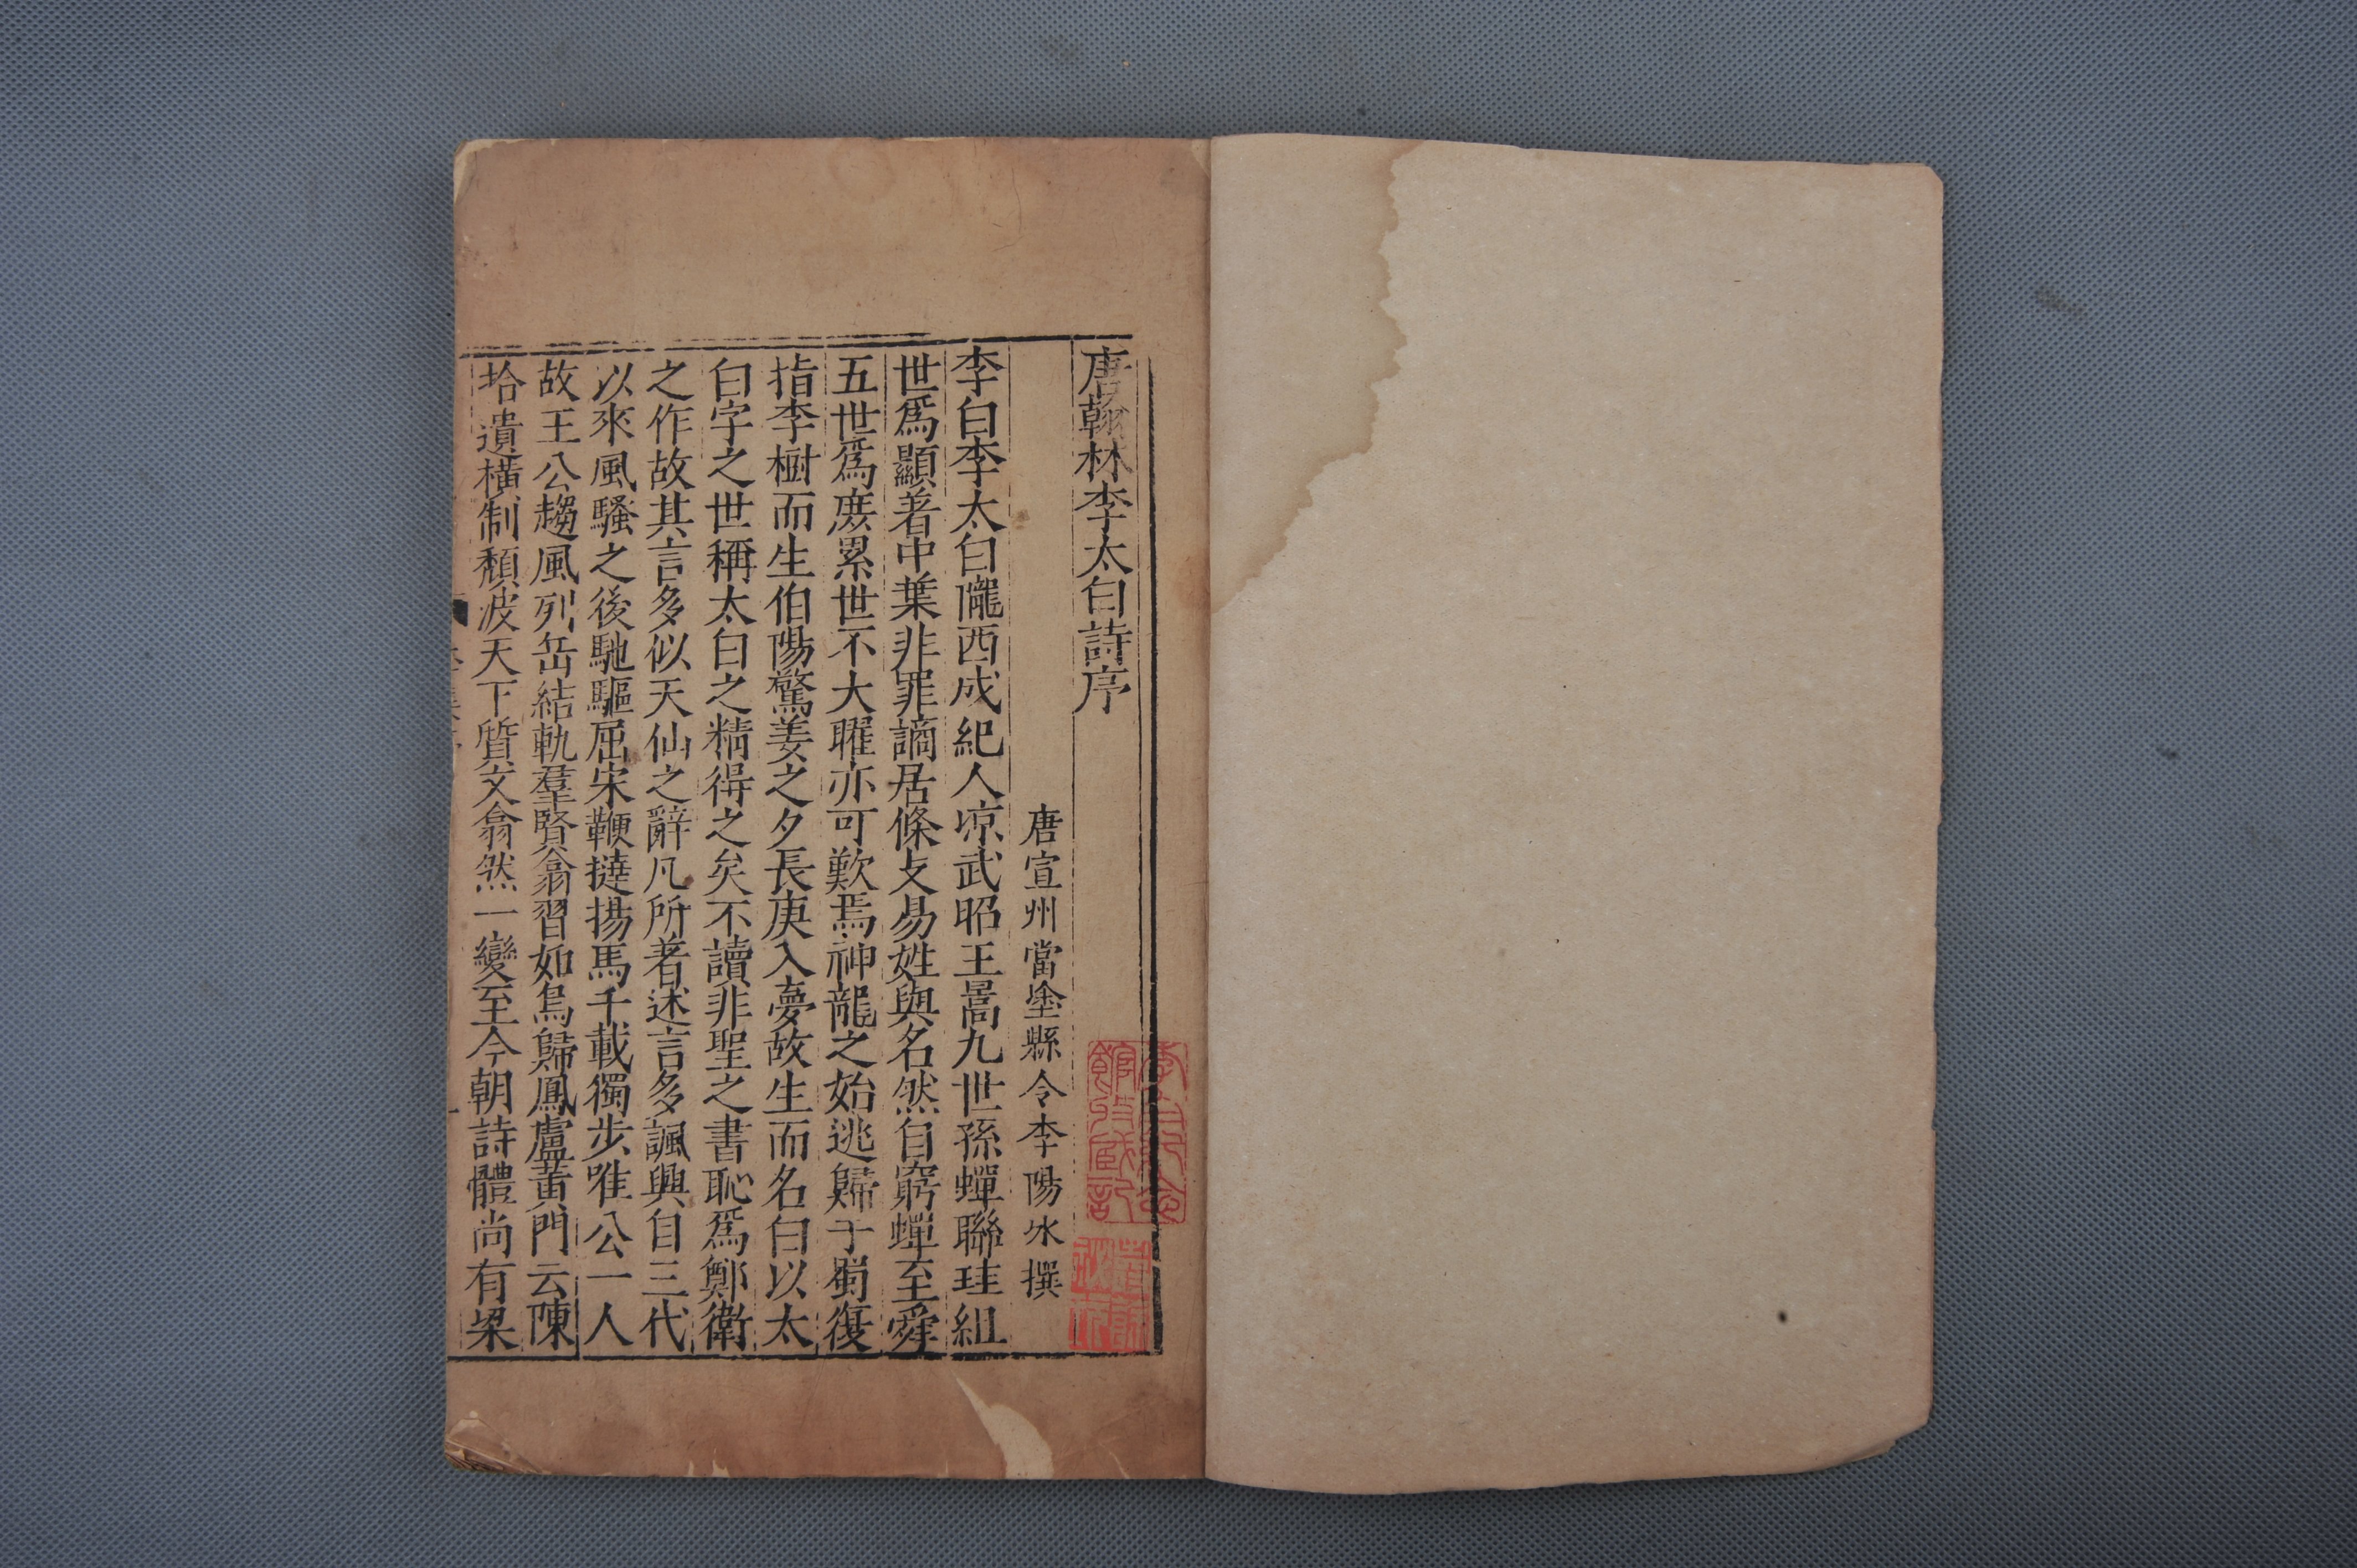 唐翰林李太白詩序
唐宣州當塗縣令李陽冰撰
李白李太白隴西成紀人凉武昭王暠九世孫蟬聯珪組
世爲顯著中葉非罪謫居條支易姓與名然自窮蟬至舜
五世爲庶累世不大曜亦可歎焉神龍之始逃歸于蜀復
指李樹而生伯陽驚姜之夕長庚入夢故生而名白以太
白字之世稱太白之精得之矣不讀非聖之書恥爲鄭衛
之作故其言多似天仙之辭凡所著述言多諷興自三代
以來風騷之後馳驅屈宋鞭撻揚馬千載獨步唯公一人
故王公趨風列岳結軌羣賢翕習如鳥歸鳳盧黃門云陳
拾遺橫制頹波天下質文翕然一變至今朝詩體尚有梁